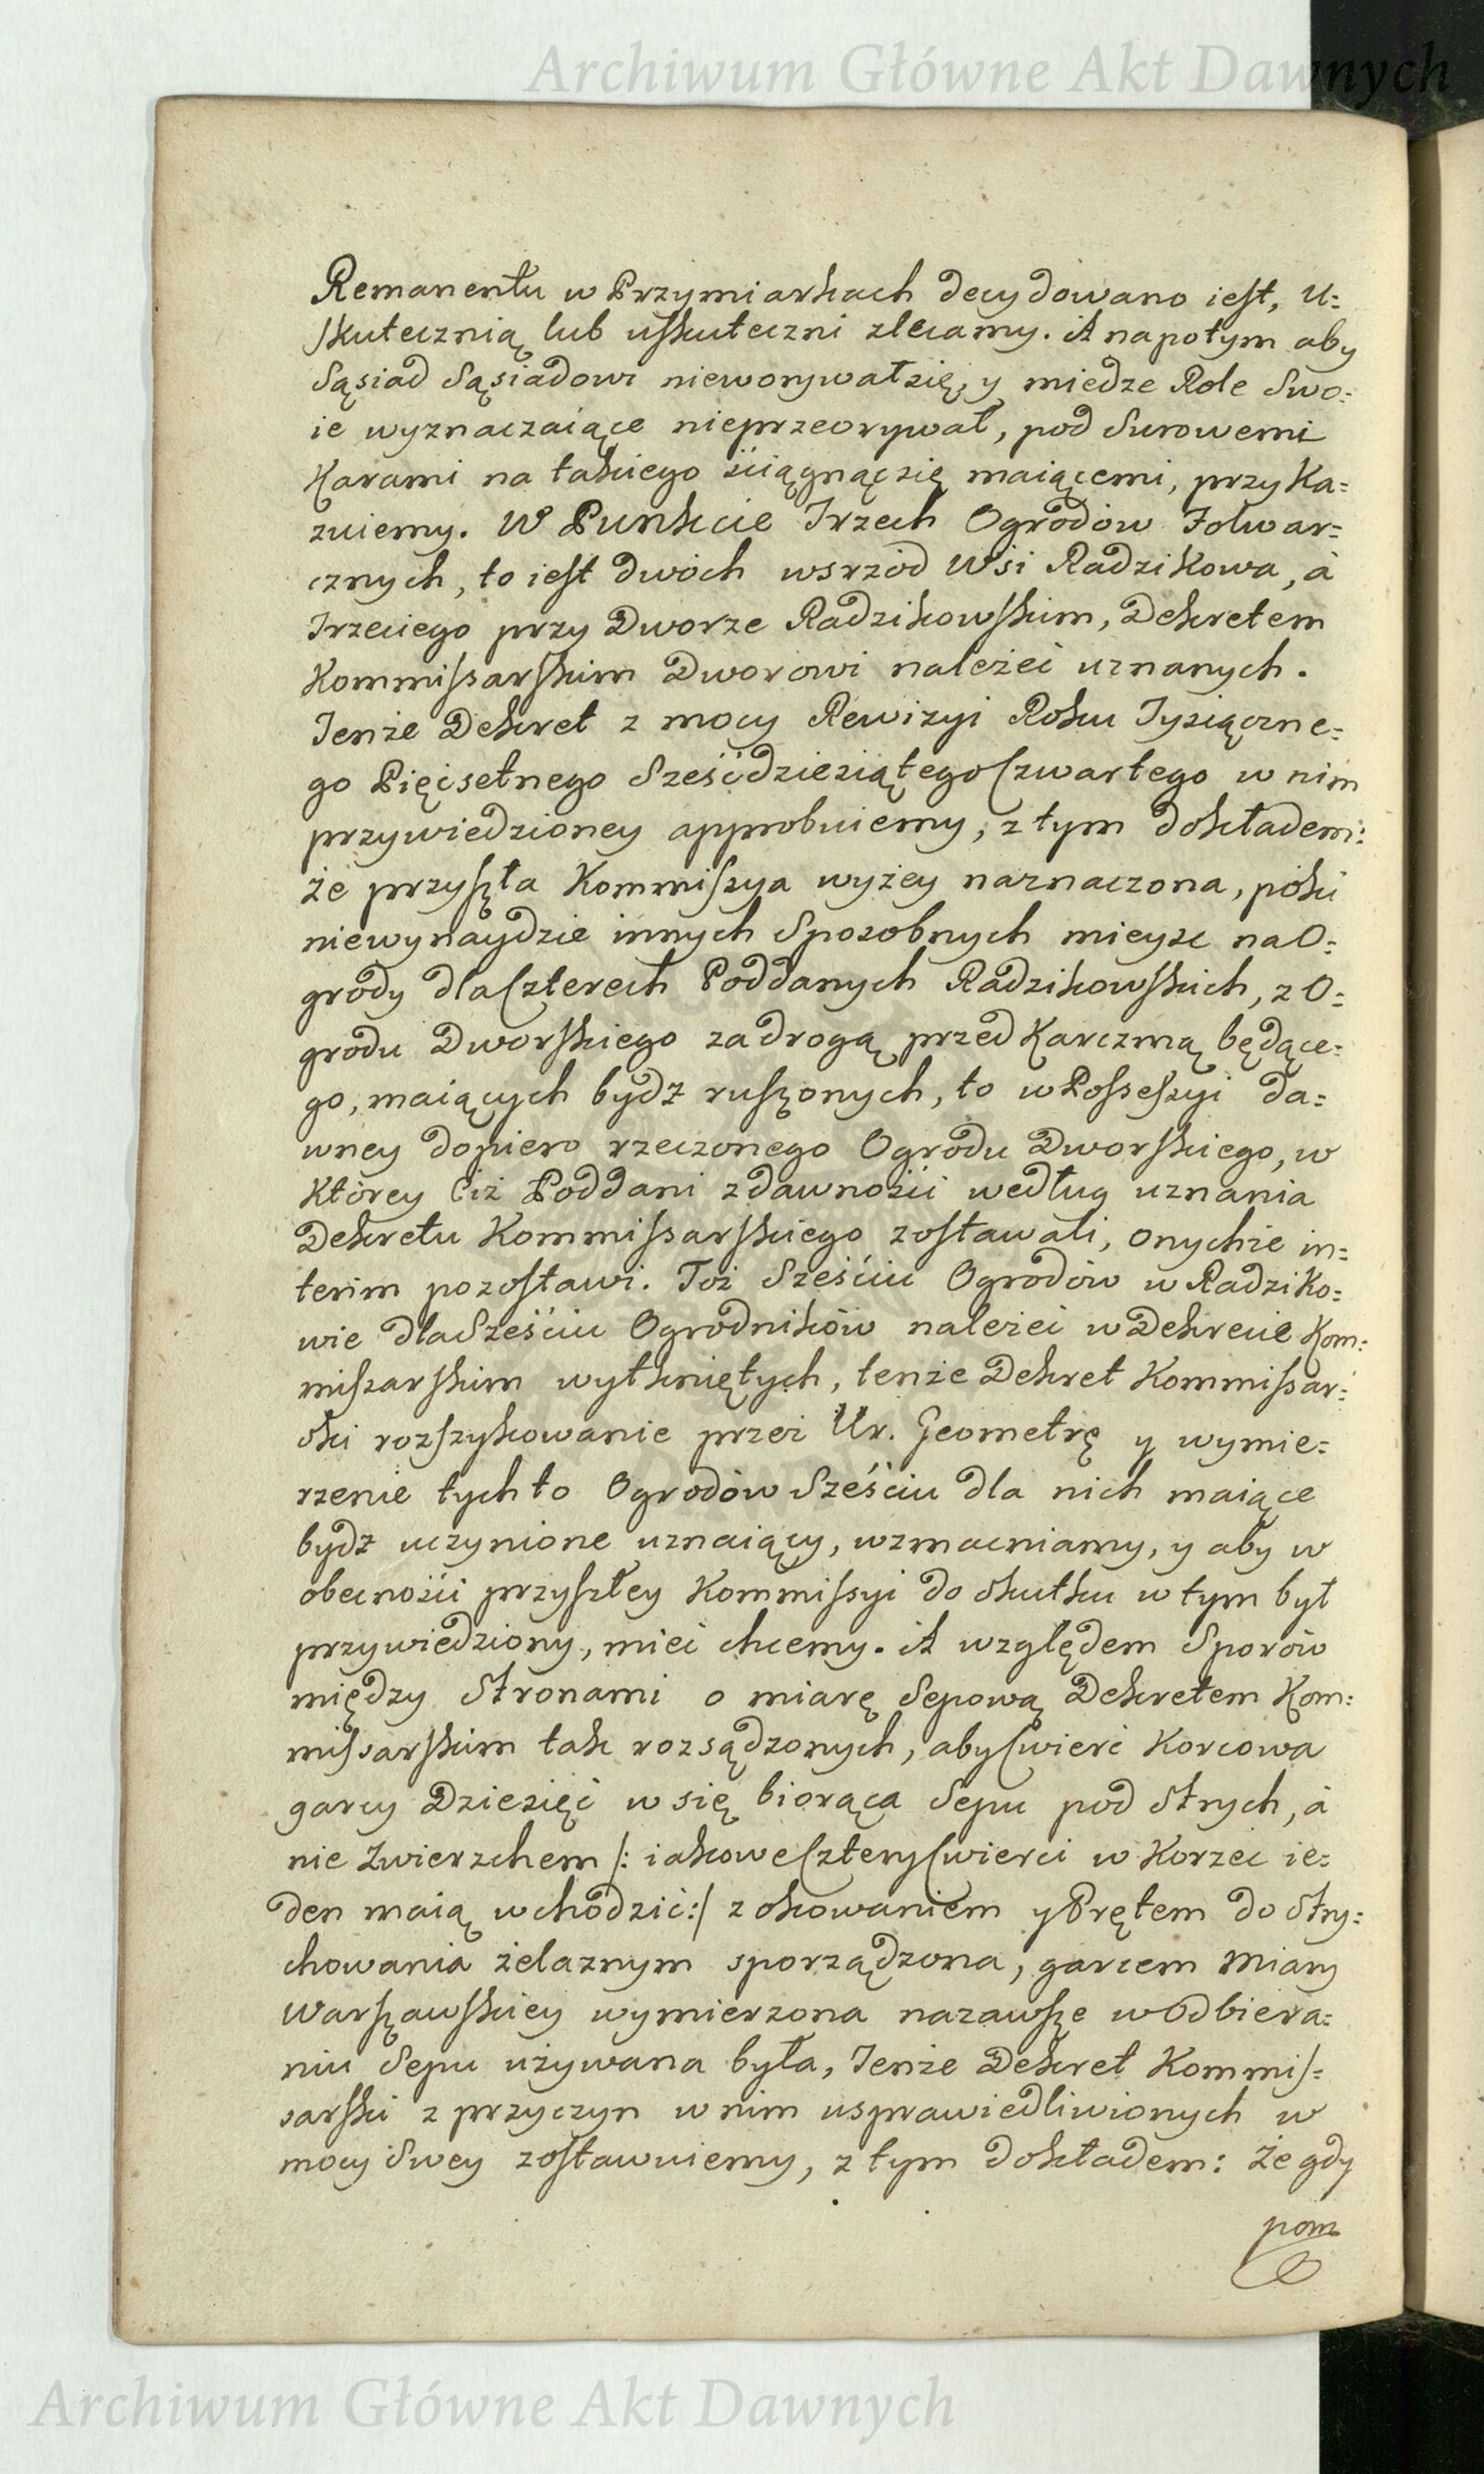 Archiwum Główne Akt Dawnych
Remanentu w Przymiarkach decydowano iest, u=
skutecznią lub uskuteczni zlecamy. A napotym aby
Sąsiad Sąsiadowi nieworywałsię, y miedze Role Swo=
ie wyznaczaiące nieprzeorywał, pod Surowemi
Karami na takiego ściągnąćsię maiącemi, przyka=
zuiemy. W Punkcie Trzech Ogrodow Folwar=
cznych, to iest dwóch wsrzod Wsi Radzikowa, à
Trzeciego przy Dworze Radzikowskim, Dekretem
Kommissarskim Dworowi należeć uznanych.
Tenże Dekret z mocy Rewizyi Roku Tysiączne=
go Pięćsetnego Sześćdziesiątego Czwartego w nim
przywiedzioney approbuiemy, z tym dokładem:
że przyszła Kommissya wyżey naznaczona, póki
niewynaydzie innych Sposobnych mieysc na O=
grody dla Czterech Poddanych Radzikowskich, z O=
grodu Dworskiego za drogą przed Karczmą będące=
go, maiących bydz ruszonych, to w Possessyi da=
wney dopiero rzeczonego Ogrodu Dworskiego, w
Którey Ciż Poddani zdawności według uznania
Dekretu Kommissarskiego zostawali, onychże in=
terim pozostawi. Toż Sześciu Ogrodów w Radziko=
wie dla Sześciu Ogrodników należeć w Dekrecie Kom=
missarskim wytkniętych, tenże Dekret Kommissar=
ski rozszykowanie przez Ur. Geometrę y wymie=
rzenie tychto Ogrodów Sześciu dla nich maiące
bydz uczynione uznaiący, wzmacniamy, y aby w
obecności przyszłey Kommissyi do skutku w tym był
przywiedziony, mieć chcemy. A względem Sporów
między Stronami o miarę Sepową Dekretem Kom=
missarskim tak rozsądzonych, aby Cwierć Korcowa
garcy Dziesięć w się biorąca Sepu pod Strych, à
nie Zwierzchem /: iakowe Cztery Cwierci w Korzec ie=
den maią wchodzić:/ z okowaniem y Prętem do Stry=
chowania żelaznym sporządzona, garcem Miary
Warszawskiey wymierzona nazawsze w Odbiera=
niu Sepu używana była, Tenże Dekret Kommis=
sarski z przyczyn w nim usprawiedliwionych w
mocy Swey zostawuiemy, z tym dokładem: że gdy
pom
Archiwum Główne Akt Dawnych